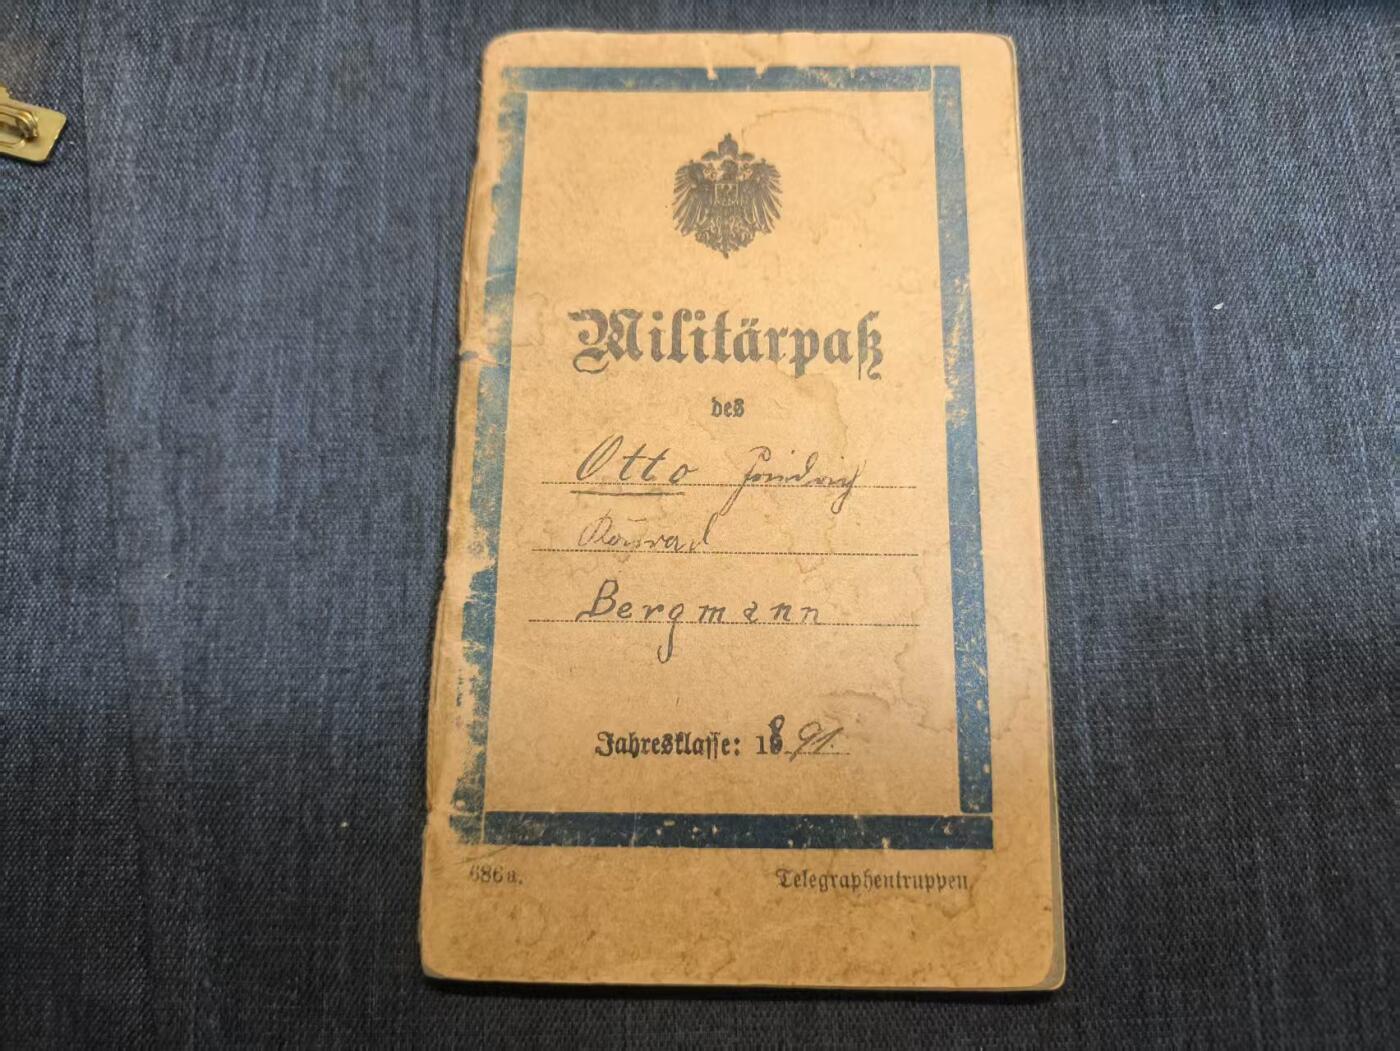 Militärpaß
des
Otto Friedrich
Konrad
Bergmann
Jahresklasse: 1891.
686a.
Telegraphentruppen